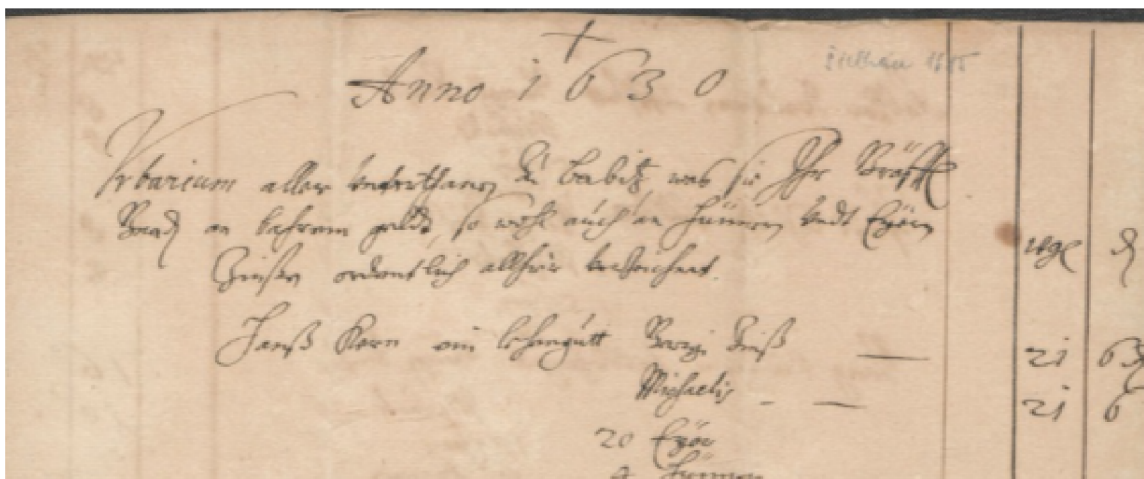 Anno 1630
Urbarium aller unterthanen Zu Babitz, was sie Ihr Gräffl
Gnad an bahrem geldt, so wohl auch an Hünnern undt Eyern
Zinsen ordentlich allhir verzeichnet.
wgl d
Hanß Kern ein lehengutt Georgi Zinß — 21 6
Michaelis - — 21 6
20 Eyer
Hünner